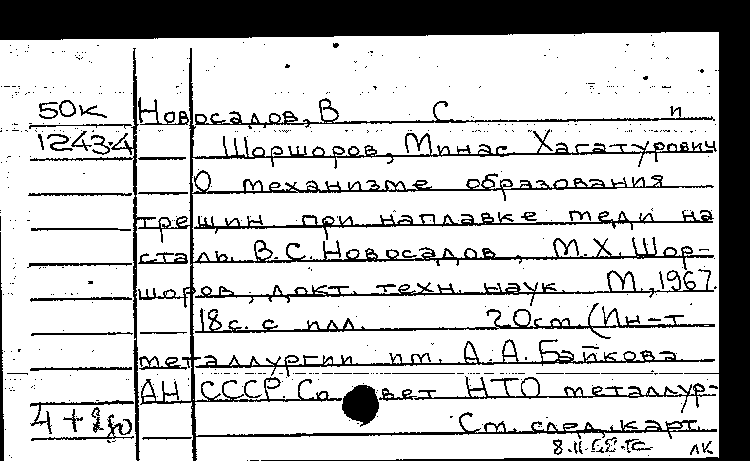 50к Новосадов, В С и
1243·4 Шоршоров, Минас Хагатурович
О механизме образования
трещин при наплавке меди на
сталь. В.С. Новосадов, М.Х. Шор-
шоров, докт. техн. наук. М., 1967.
18с. с илл. 20см. (Ин-т
металлургии им. А.А. Байкова
АН СССР. Со вет НТО металлур-
4+ См. след. карт.
ЛК